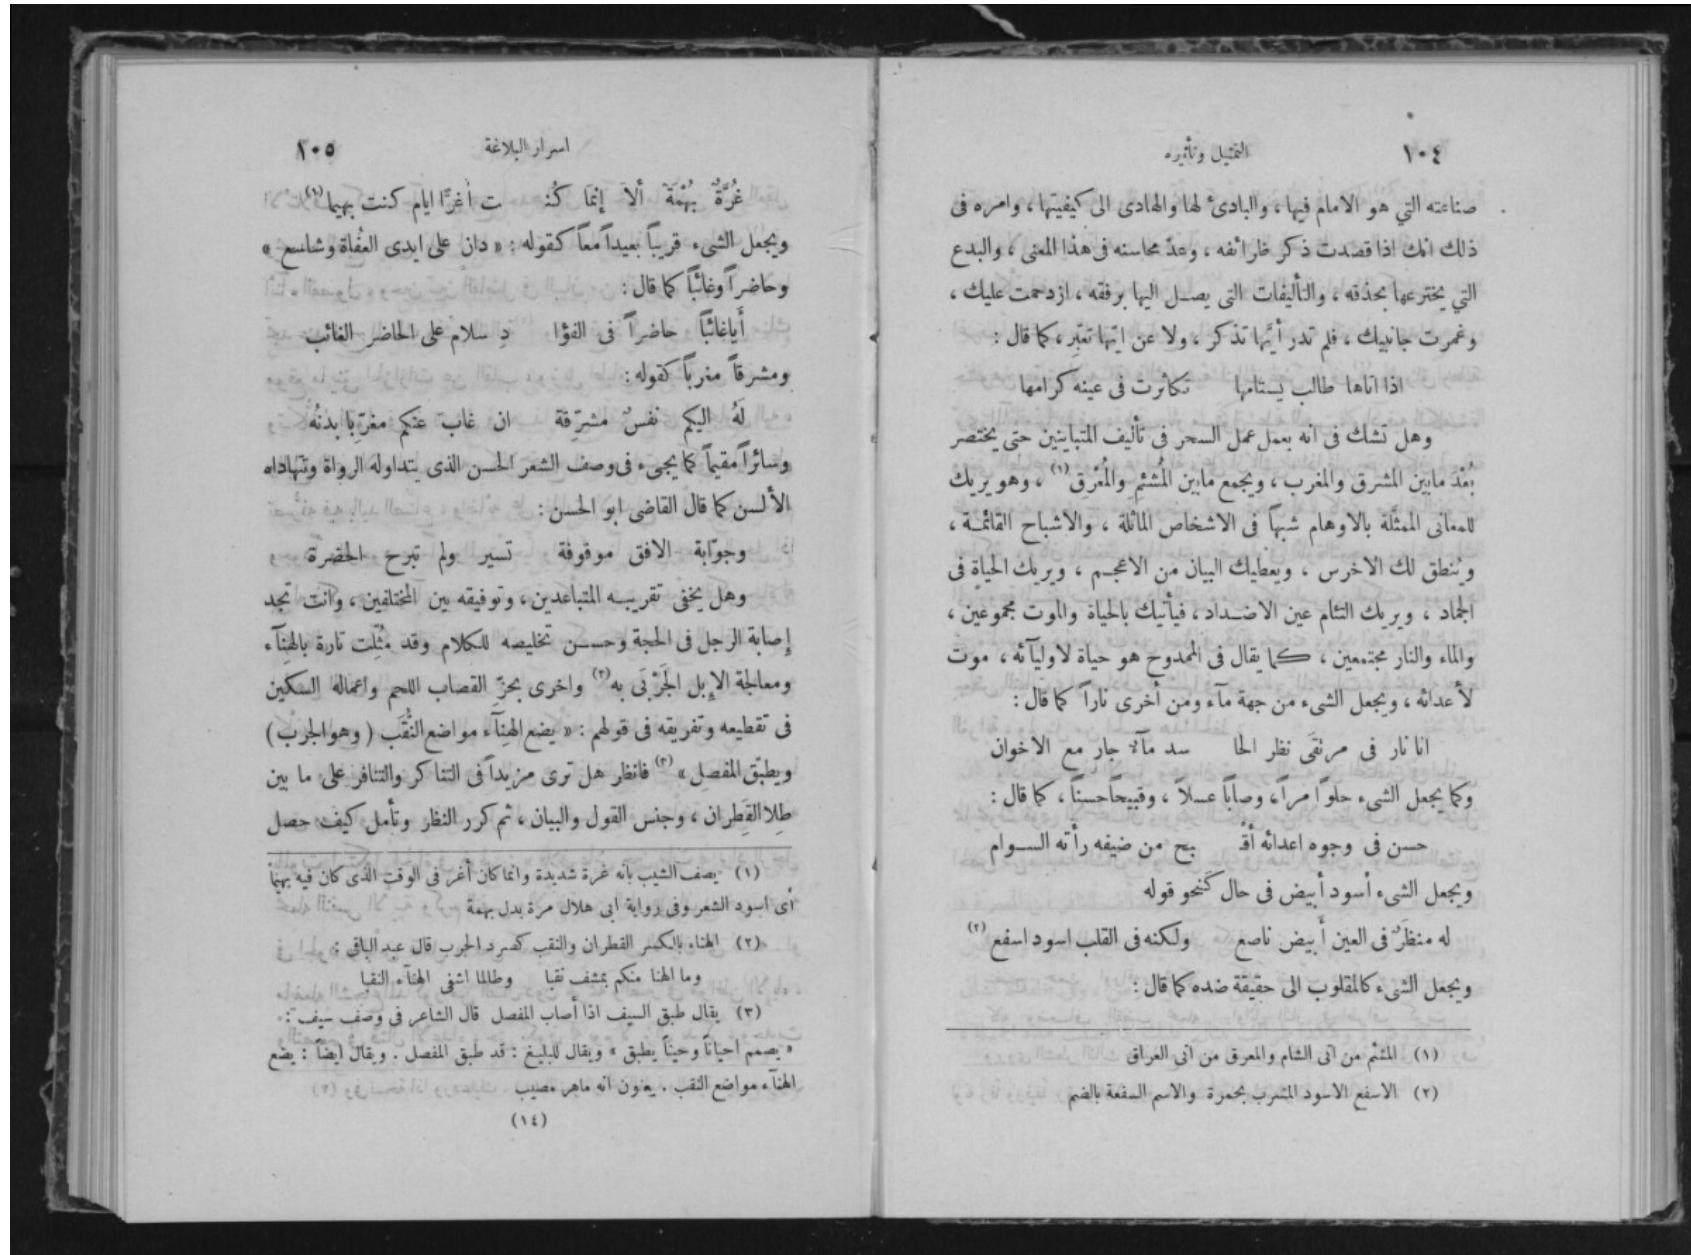 ١٠٤
التمثيل وتأثيره
صناعته التي هو الامام فيها ، والبادئ لها والهادى الى كيفيتها ، وامره فى
ذلك انك اذا قصدت ذكر ظرائفه ، وعدّ محاسنه فى هذا المعنى ، والبدع
التي يخترعها بحذقه ، والتأليفات التى يصل اليها برفقه ، ازدحمت عليك ،
وغمرت جانبيك ، فلم تدر أيَّها تذكر ، ولا عن ايّها تعبّر ، كما قال :
اذا اتاها طالب يستامها تكاثرت فى عينه كرامها
وهل تشك فى انه يعمل عمل السحر فى تأليف المتباينين حتى يختصر
بُعْدَ مابين المشرق والمغرب ، ويجمع مابين المُشئمِ والمُعْرِق (١) ، وهو يريك
للمعانى الممثَّلة بالاوهام شبهاً فى الاشخاص الماثلة ، والاشباح القائمة ،
ويُنطق لك الاخرس ، ويعطيك البيان من الاعجم ، ويريك الحياة فى
الجماد ، ويريك التئام عين الاضداد ، فيأتيك بالحياة والموت مجموعين ،
والماء والنار مجتمعين ، كما يقال فى الممدوح هو حياة لاوليآئه ، موت
لأعدائه ، ويجعل الشىء من جهة مآء ومن أخرى ناراً كما قال :
انا نار فى مرتقَى نظر الحا سد مآءٌ جار مع الاخوان
وكما يجعل الشىء حلوًا مراً ، وصاباً عسلاً ، وقبيحاً حسناً ، كما قال :
حسن فى وجوه اعدائه أقـ بح من ضيفه رأته السوام
ويجعل الشىء أسود أبيض فى حال كَنحو قوله
له منظَرٌ فى العين أَبيض ناصع ولكنه فى القلب اسود اسفع (٢)
ويجعل الشىء كالمقلوب الى حقيقة ضده كما قال :
(١) المشئم من اتى الشام والمعرق من اتى العراق
(٢) الاسفع الاسود المشرب بحمرة والاسم السفعة بالضم
اسرار البلاغة
١٠٥
غُرَّةٌ بُهْمَةٌ ألاَ إنَّمَا كُنـ ـت أغرًّا ايام كنت بهيما (١)
ويجعل الشىء قريباً بعيداً معاً كقوله : « دان على ايدى العُفاة وشاسع »
وحاضراً وغائباً كما قال :
أَيا غائباً حاضراً فى الفؤا دِ سلام على الحاضر الغائب
ومشرقاً مغرباً كقوله :
لَهُ اليكم نفسٌ مشرّقة ان غاب عنكم مغرّباً بدنُهُ
وسائراً مقيماً كما يجىء فى وصف الشعر الحسن الذى يتداوله الرواة وتتهاداه
الألسن كما قال القاضى ابو الحسن :
وجوّابة الافق موقوفة تسير ولم تبرح الحضرة
وهل يخفى تقريبه المتباعدين ، وتوفيقه بين المختلفين ، وانت تجد
إصابة الرجل فى الحجة وحسن تخليصه للكلام وقد مُثِّلت تارة بالهِنآء
ومعالجة الإبل الجَرْبَى به (٢) واخرى بحزّ القصاب اللحم واعماله السكين
فى تقطيعه وتفريقه فى قولهم : « يضع الهِنآء مواضع النُّقَب ( وهو الجرب )
ويطبّق المفصِل » (٣) فانظر هل ترى مزيداً فى التناكر والتنافر على ما بين
طِلا القَطِران ، وجنس القول والبيان ، ثم كرر النظر وتأمل كيف حصل
(١) يصف الشيب بأنه غرة شديدة وانما كان أغر فى الوقت الذى كان فيه بهيماً
أى اسود الشعر وفى رواية ابى هلال مرة بدل بهمة
(٢) الهناء بالكسر القطران والنقب كصرد الجرب قال عبد الباقى :
وما الهنا منكم بمشف نقبا وطالما اشفى الهنآء النقبا
(٣) يقال طبق السيف اذا أصاب المفصل قال الشاعر فى وصف سيف :
« يصمم احياناً وحيناً يطبق » ويقال للبليغ : قد طبق المفصل . ويقال ايضاً : يضع
الهنآء مواضع النقب . يعنون انه ماهر مصيب
(١٤)